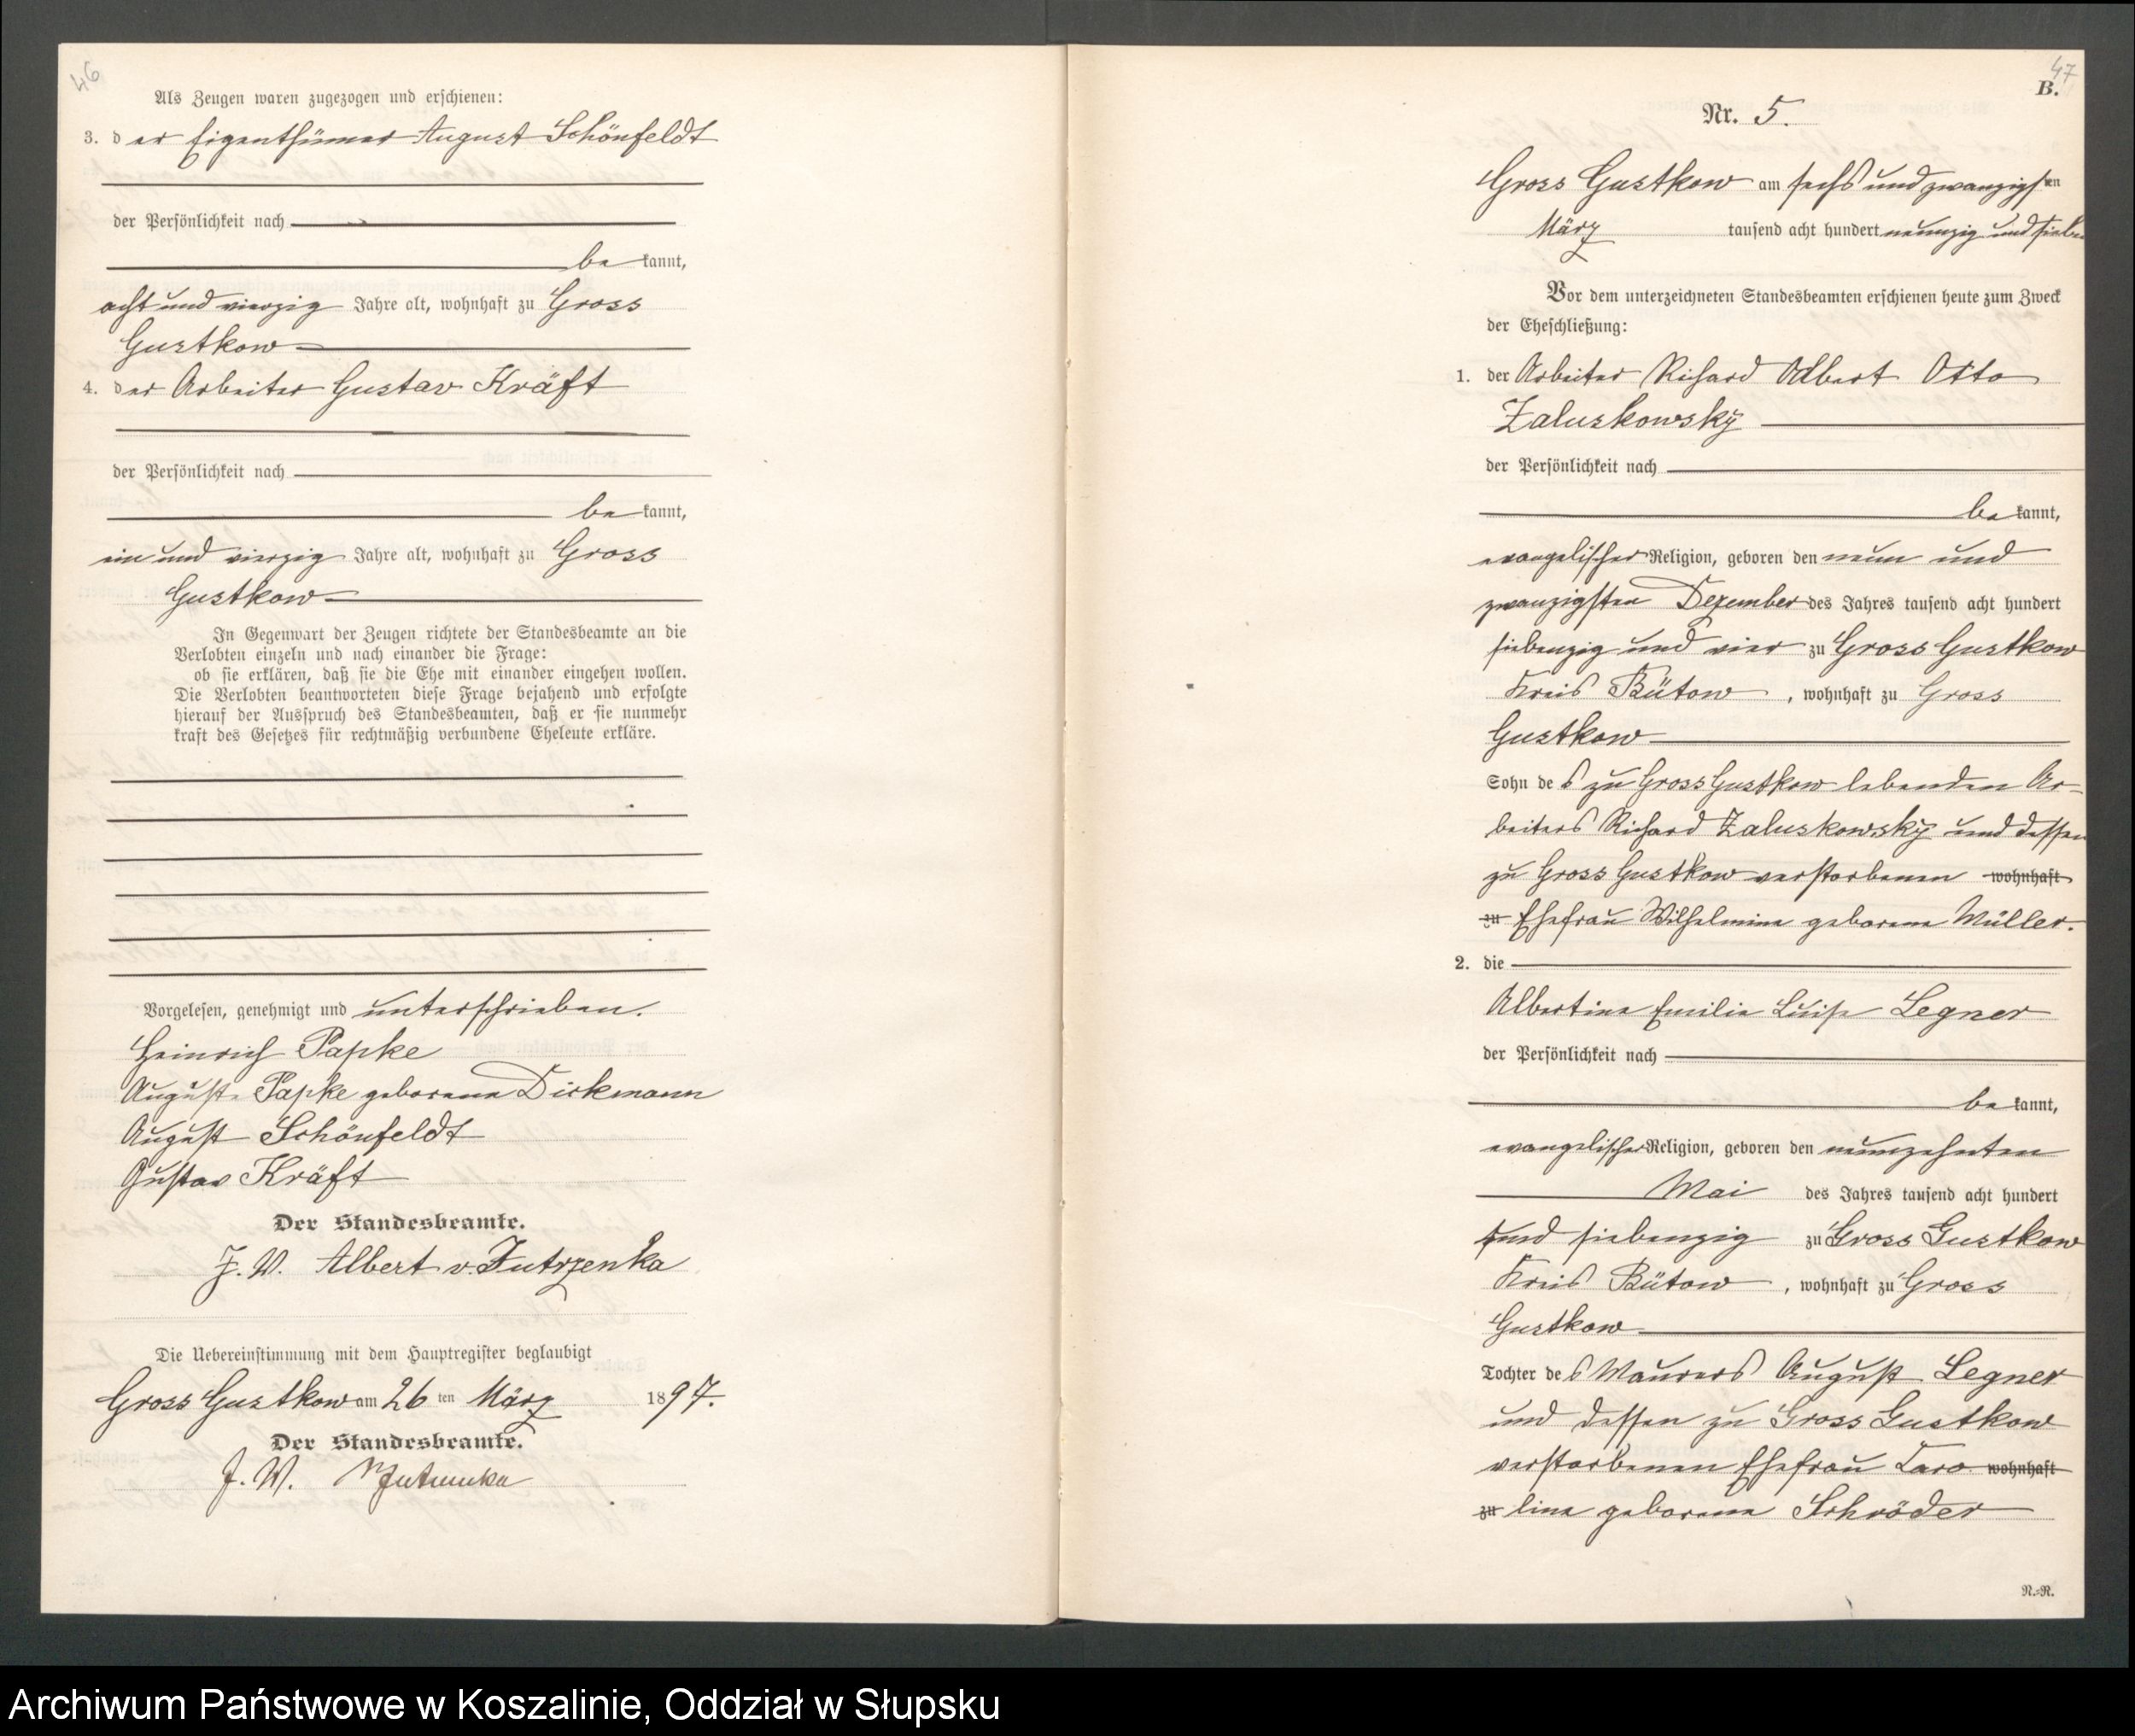 46
Als Zeugen waren zugezogen und erschienen:
3. der Eigenthümer August Schönfeldt
der Persönlichkeit nach
bekannt,
acht und vierzig Jahre alt, wohnhaft zu Gross
Gustkow
4. der Arbeiter Gustav Kräft
der Persönlichkeit nach
bekannt,
ein und vierzig Jahre alt, wohnhaft zu Gross
Gustkow
In Gegenwart der Zeugen richtete der Standesbeamte an die
Verlobten einzeln und nach einander die Frage:
ob sie erklären, daß sie die Ehe mit einander eingehen wollen.
Die Verlobten beantworteten diese Frage bejahend und erfolgte
hierauf der Ausspruch des Standesbeamten, daß er sie nunmehr
kraft des Gesetzes für rechtmäßig verbundene Eheleute erkläre.
Vorgelesen, genehmigt und unterschrieben.
Heinrich Papke
Auguste Papke geborene Dickmann
August Schönfeldt
Gustav Kräft
Der Standesbeamte.
J. V. Albert v. Jutrzenka
Die Uebereinstimmung mit dem Hauptregister beglaubigt
Gross Gustkow am 26ten März 1897.
Der Standesbeamte.
J. V. v Jutrzenka
47
B.
Nr. 5.
Gross Gustkow am sechs und zwanzigsten
März tausend acht hundert neunzig und sieben
Vor dem unterzeichneten Standesbeamten erschienen heute zum Zweck
der Eheschließung:
1. der Arbeiter Richard Albert Otto
Zaluskowsky
der Persönlichkeit nach
bekannt,
evangelischer Religion, geboren den neun und
zwanzigsten Dezember des Jahres tausend acht hundert
siebenzig und vier zu Gross Gustkow
Kreis Bütow, wohnhaft zu Gross
Gustkow
Sohn des zu Gross Gustkow lebenden Ar-
beiters Richard Zaluskowsky und dessen
zu Gross Gustkow verstorbenen wohnhaft
zu Ehefrau Wilhelmine geborene Müller.
2. die
Albertine Emilie Luise Legner
der Persönlichkeit nach
bekannt,
evangelischer Religion, geboren den neunzehnten
Mai des Jahres tausend acht hundert
und siebenzig zu Gross Gustkow
Kreis Bütow, wohnhaft zu Gross
Gustkow
Tochter des Maurers August Legner
und dessen zu Gross Gustkow
verstorbenen Ehefrau Caro wohnhaft
zu line geborene Schröder
N.-R.
Archiwum Państwowe w Koszalinie, Oddział w Słupsku